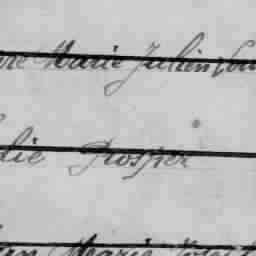 re Marie Julien Lou
die Prosper
in Marie